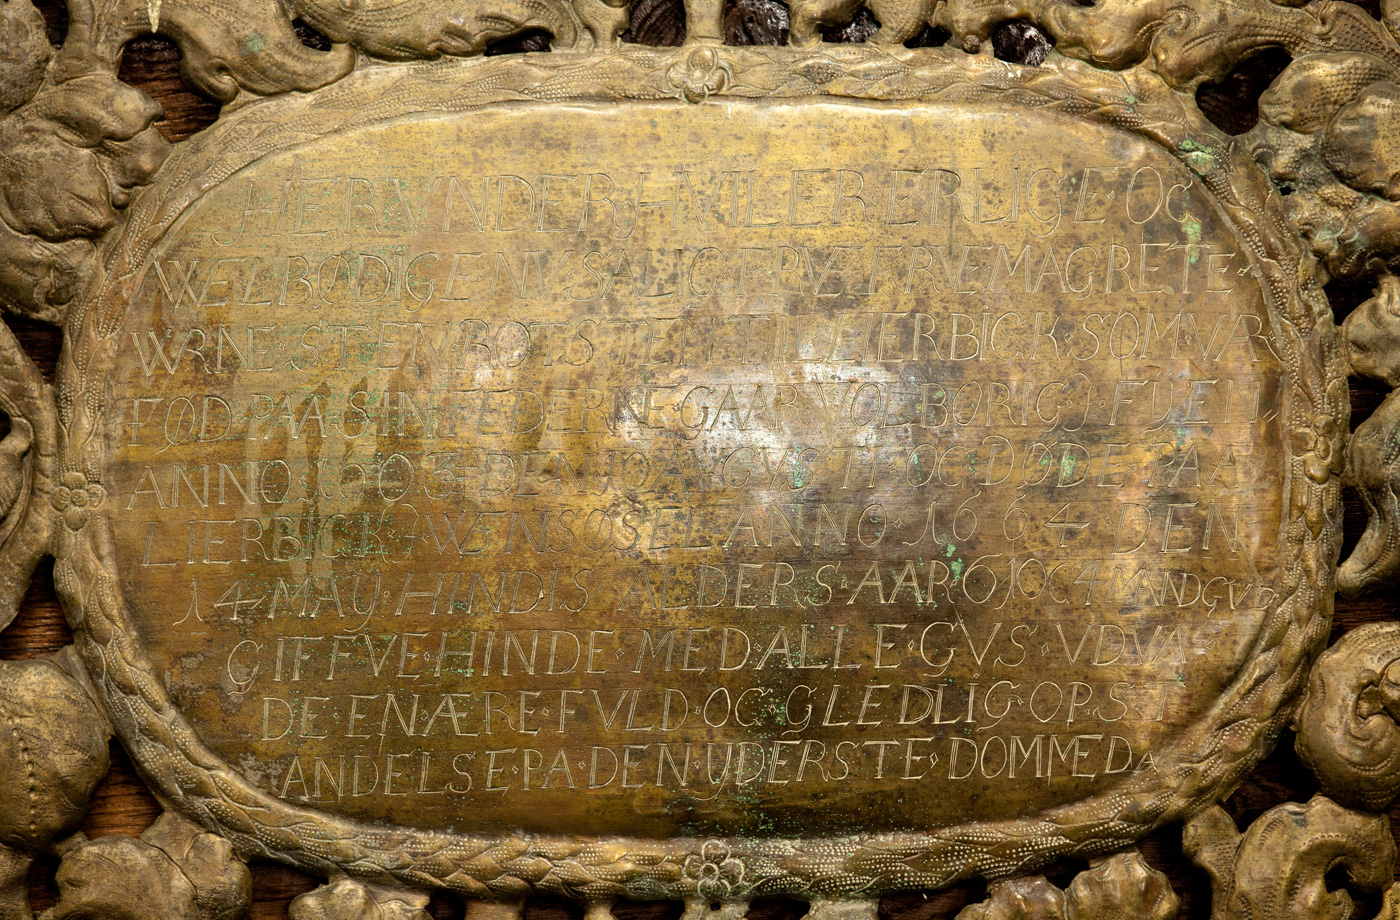 HIER VNDER HVILER ERLIGE · OG
WELBØDIGE NV SALIGE FRVE FRVE · MAGRETE ·
WRNE · STEN BOTSTEN TIL LIERBICK · SOM · VAR
FØD · PAA SIN FEDERNE · GAAR
ANNO · 1603 · DEN OG DØDE · PAA
LIERBICK J WENSØSEL ANNO · 1664 DEN
14 MAIJ · HINDIS ALDERS · AAR 61 OC 4 MAND GVD
GIFFVE · HINDE · MED · ALLE · GVS · VDVA
DE · EN · ÆRE · FVLD · OG · GLEDLIG · OPST
ANDELSE · PA · DEN · YDERSTE · DOMME DA